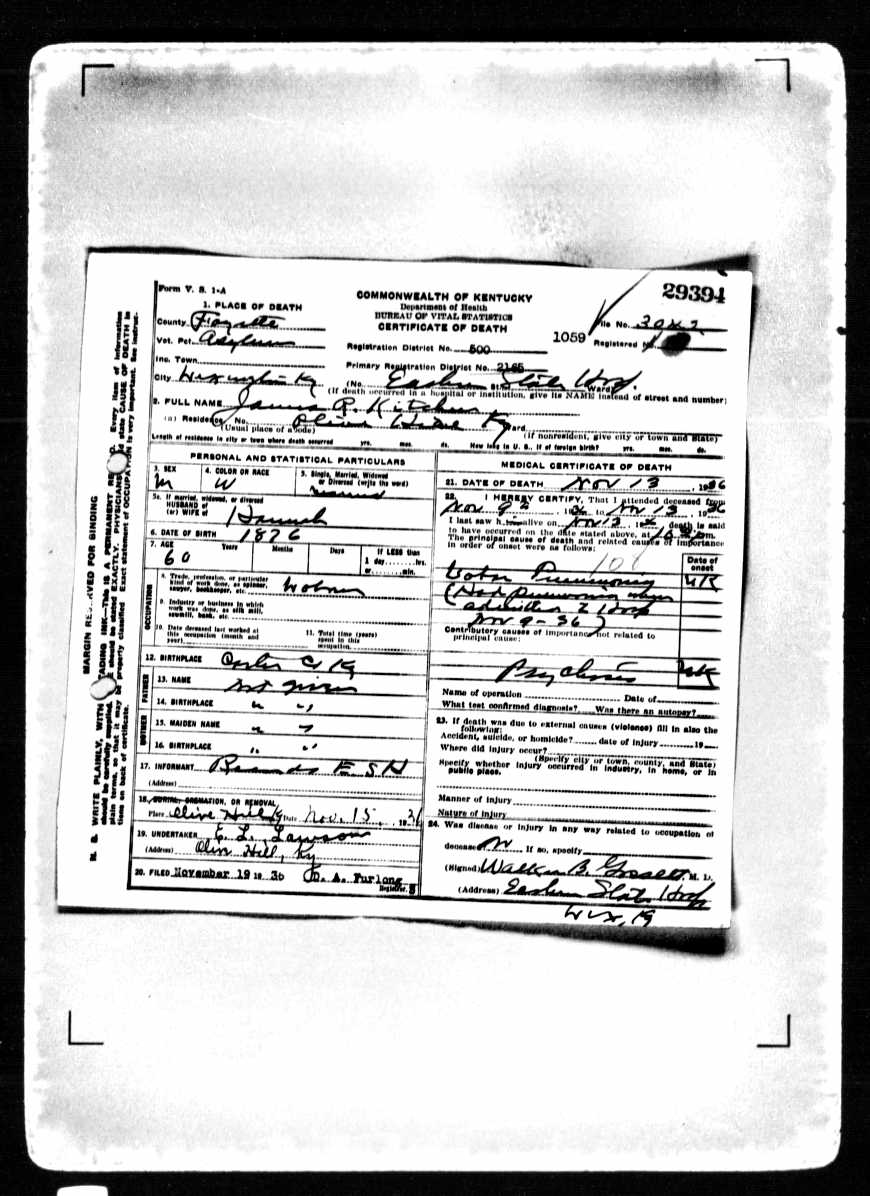 Form V. S. 1-A
29394
COMMONWEALTH OF KENTUCKY
Department of Health
BUREAU OF VITAL STATISTICS
CERTIFICATE OF DEATH
1059
File No.
Registered No.
1. PLACE OF DEATH
County Fayette
Vot. Pct. Asylum
Inc. Town
City Lexington Ky
Registration District No. 500
Primary Registration District No. 2165
(No. Eastern State Hosp. St. Ward)
(If death occurred in a hospital or institution, give its NAME instead of street and number)
2. FULL NAME James R. Kitchen
(a) Residence, No. Olive Hill Ky Ward
(Usual place of abode) (If nonresident, give city or town and State)
Length of residence in city or town where death occurred yrs. mos. ds. How long in U. S., if of foreign birth? yrs. mos. ds.
PERSONAL AND STATISTICAL PARTICULARS
3. SEX M
4. COLOR OR RACE W
5. Single, Married, Widowed or Divorced (write the word)
married
5a. If married, widowed, or divorced
HUSBAND of
(or) WIFE of Hannah
6. DATE OF BIRTH 1876
7. AGE 60 Years Months Days If LESS than
1 day hrs.
or min.
OCCUPATION
8. Trade, profession, or particular
kind of work done, as spinner,
sawyer, bookkeeper, etc.
9. Industry or business in which
work was done, as silk mill,
sawmill, bank, etc.
10. Date deceased last worked at
this occupation (month and
year)
11. Total time (years)
spent in this
occupation
12. BIRTHPLACE Carter Co Ky
FATHER
13. NAME not given
14. BIRTHPLACE " "
MOTHER
15. MAIDEN NAME " "
16. BIRTHPLACE " "
17. INFORMANT Records E S H
(Address)
18. BURIAL, CREMATION, OR REMOVAL
Place Olive Hill Ky Date Nov. 15, 1936
19. UNDERTAKER E. L. Lawson
(Address) Olive Hill, Ky
20. FILED November 19 1936 D. A. Furlong
Registrar.
MEDICAL CERTIFICATE OF DEATH
21. DATE OF DEATH Nov 13, 1936
22. I HEREBY CERTIFY, That I attended deceased from
Nov 9, 1936 to Nov 13, 1936
I last saw h im alive on Nov 13, 1936 death is said
to have occurred on the date stated above, at m.
The principal cause of death and related causes of importance
in order of onset were as follows:
Date of
onset
Lobar Pneumonia UK
(Had pneumonia when
admitted to Hosp
Nov 9-36)
Contributory causes of importance not related to
principal cause:
Psychosis UK
Name of operation Date of
What test confirmed diagnosis? Was there an autopsy?
23. If death was due to external causes (violence) fill in also the
following:
Accident, suicide, or homicide? date of injury 19
Where did injury occur?
(Specify city or town, county, and State)
Specify whether injury occurred in industry, in home, or in
public place.
Manner of injury
Nature of injury
24. Was disease or injury in any way related to occupation of
deceased No If so, specify
(Signed) M. D.
(Address) Eastern State Hosp
Lex, Ky
MARGIN RESERVED FOR BINDING